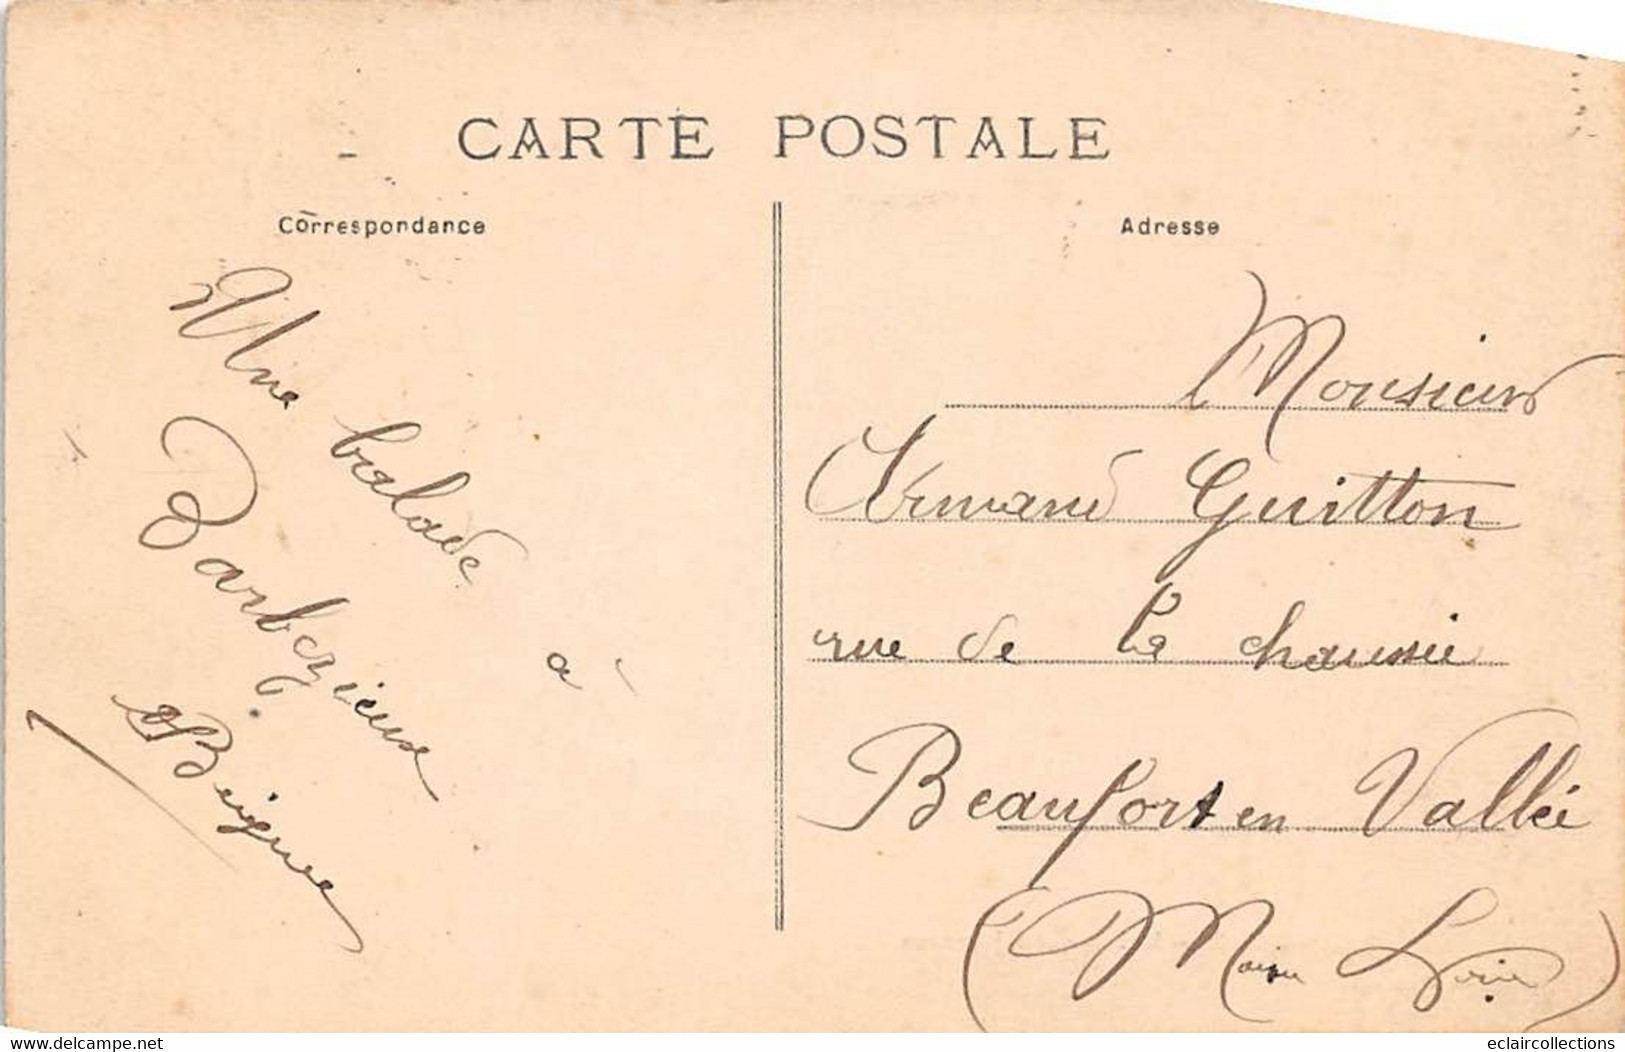 CARTE POSTALE
Correspondance
Une balade à
Barbezieux
Adresse
Monsieur
Armand Guitton
rue de la chaussée
Beaufort en Vallée
(Maine Loire)
eclaircollections